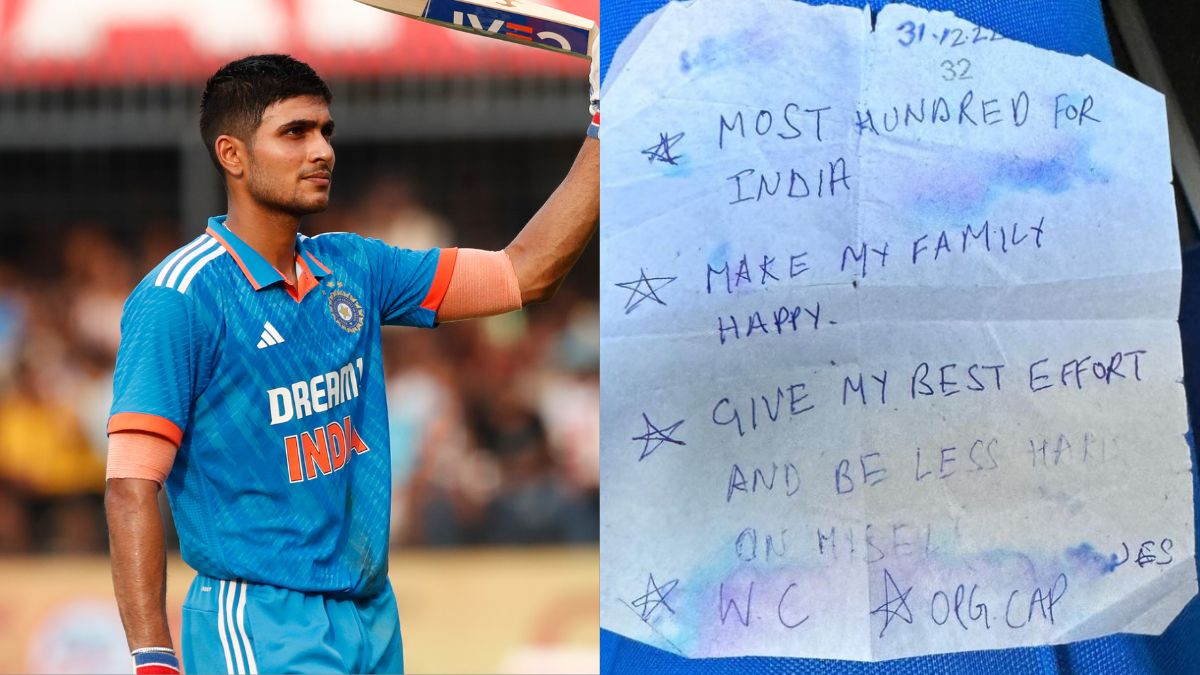 CEAT
DREAM11
INDIA
31.12.22
32
MOST HUNDRED FOR
INDIA
MAKE MY FAMILY
HAPPY.
GIVE MY BEST EFFORT
AND BE LESS HARD
ON
W.C ORG.CAP